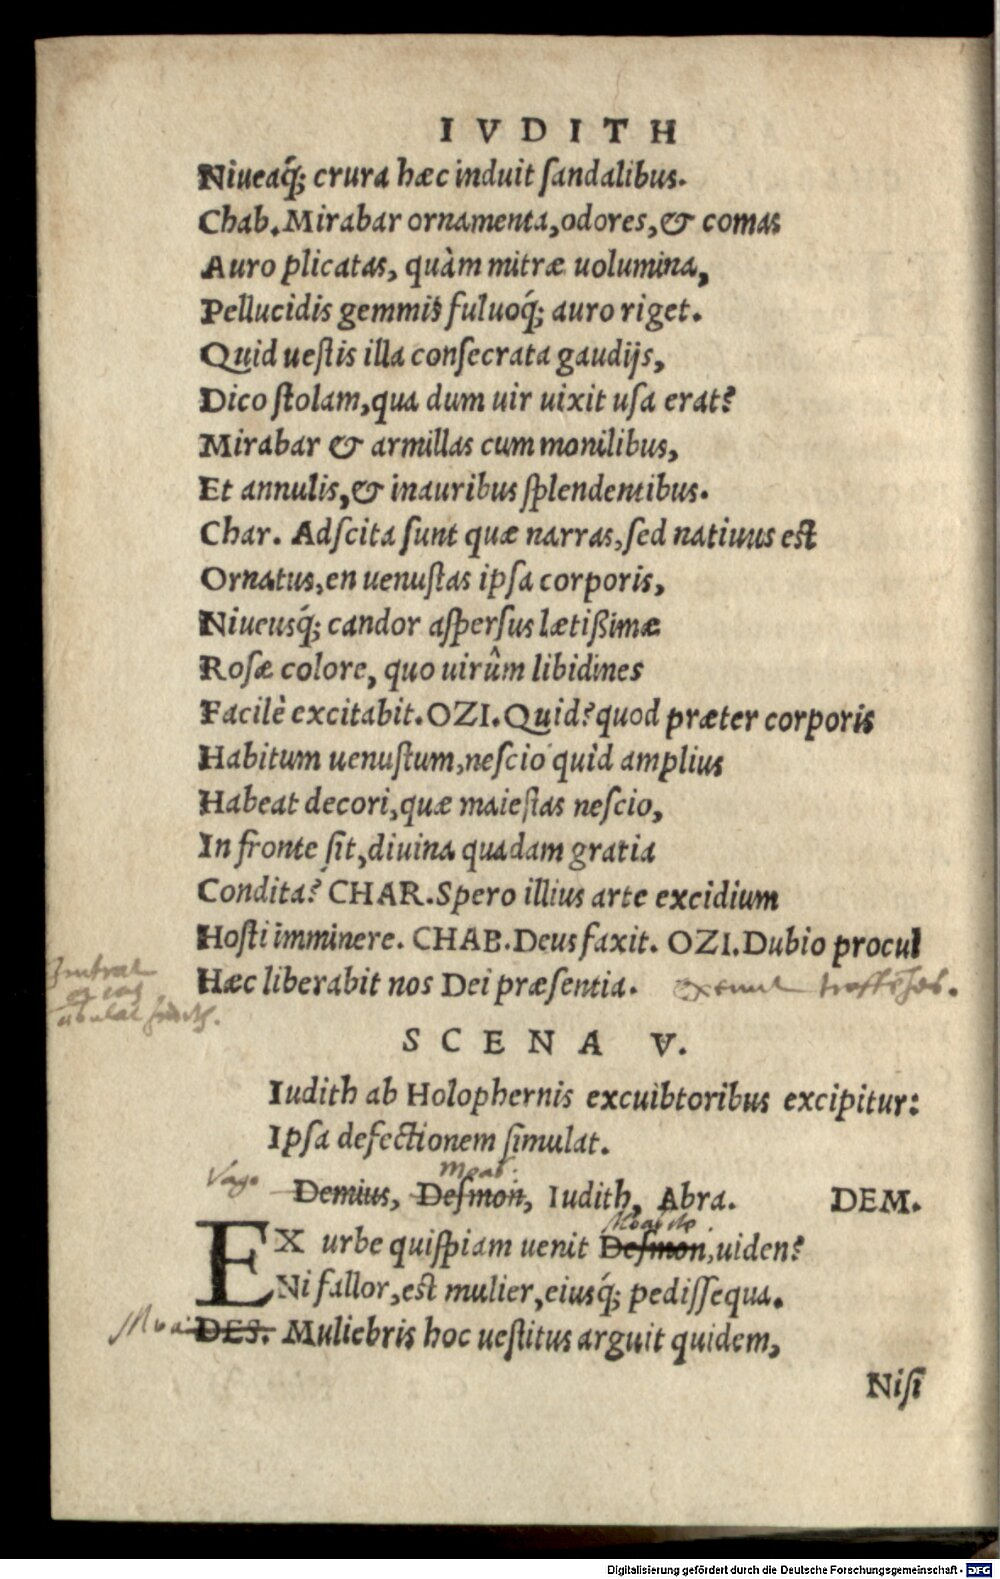 IVDITH
Niueaq́; crura hæc induit ſandalibus.
Chab. Mirabar ornamenta, odores, & comas
Auro plicatas, quàm mitræ uolumina,
Pellucidis gemmis fuluoq́; auro riget.
Quid ueſtis illa conſecrata gaudijs,
Dico ſtolam, qua dum uir uixit uſa erat?
Mirabar & armillas cum monilibus,
Et annulis, & inauribus ſplendentibus.
Char. Adſcita ſunt quæ narras, ſed natiuus eſt
Ornatus, en uenuſtas ipſa corporis,
Niueusq́; candor aſperſus lætißimæ
Roſæ colore, quo uirûm libidines
Facilè excitabit. OZI. Quid? quod præter corporis
Habitum uenuſtum, neſcio quid amplius
Habeat decori, quæ maieſtas neſcio,
In fronte ſit, diuina quadam gratia
Condita? CHAR. Spero illius arte excidium
Hoſti imminere. CHAB. Deus faxit. OZI. Dubio procul
Hæc liberabit nos Dei præſentia. exeunt
SCENA V.
Iudith ab Holophernis excuibtoribus excipitur:
Ipſa defectionem ſimulat.
Vago Moab:
Demius, Deſmon, Iudith, Abra. DEM.
EX urbe quiſpiam uenit Deſmon, uiden?
Ni fallor, eſt mulier, eiusq́; pediſſequa.
DES. Muliebris hoc ueſtitus arguit quidem,
Niſi
Digitalisierung gefördert durch die Deutsche Forschungsgemeinschaft - DFG